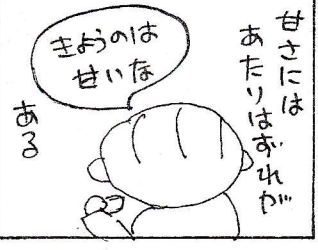 甘さには
あたりはずれが
きょうのは
甘いな
ある